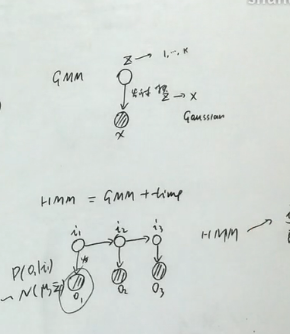 z → 1, ..., K
GMM
z → x
x
Gaussian
HMM = GMM + time
i₁ i₂ i₃
HMM →
P(o₁|i₁)
~ N(μ, Σ)
o₁ o₂ o₃